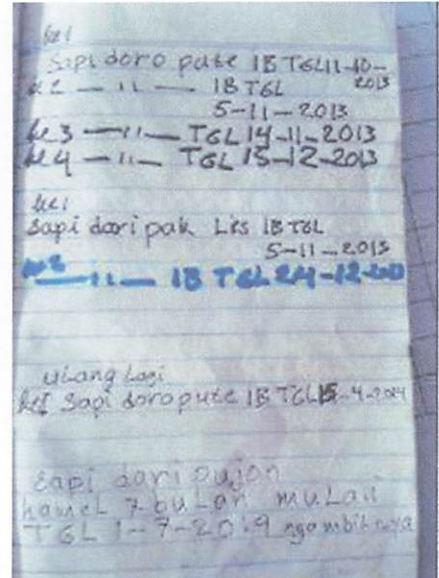 ke1
Sapi doro pute IB TGL 11-10-
2013
ke 2 — 11 — IB TGL
5-11-2013
ke 3 — 11 — TGL 14-11-2013
ke 4 — 11 — TGL 15-12-2013
ke1
Sapi dari pak Lis IB TGL
5-11-2013
— 11 — IB TGL 24-12-
ulang Lagi
ke1 Sapi doro pute IB TGL 15-4-2014
Sapi dari pujon
hamel 7 bulan mulai
TGL 1-7- ngambilnya